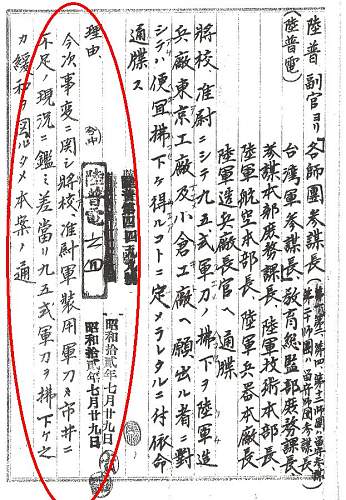 陸普 副官ヨリ 各師團参謀長
(陸普電)
台湾軍参謀長 教育総監部庶務課長
参謀本部庶務課長 陸軍技術本部長
陸軍航空本部長 陸軍兵器本廠長
陸軍造兵廠長官ヘ 通牒
将校准尉ニシテ九五式軍刀ノ拂下ヲ陸軍造
兵廠東京工廠及小倉工廠ヘ願出ル者ニ對
シテハ便宜拂下ケ得ルコトニ定メラレタルニ付依命
通牒ス
陸普電七四
昭和拾貳年七月廿九日
昭和拾貳年七月廿九日
理由
今次事変ニ関シ将校准尉軍装用軍刀ノ市井ニ
不足ノ現況ニ鑑ミ差當リ九五式軍刀ヲ拂下ケ之
カ緩和ヲ図ルタメ本案ノ通